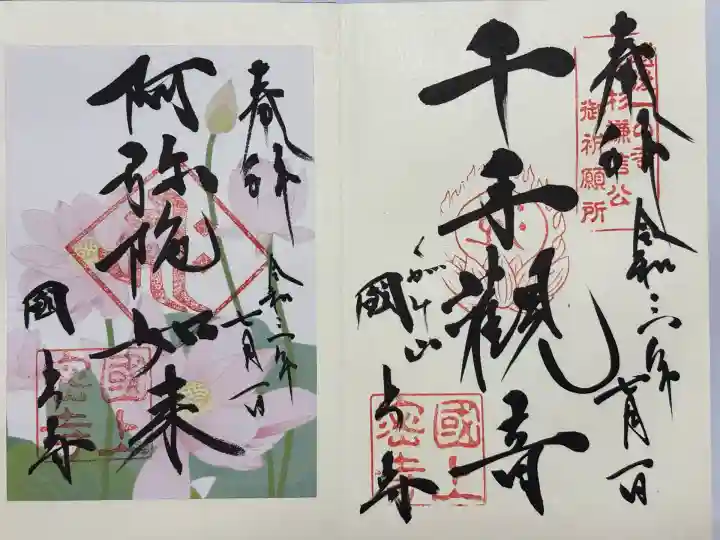 越後一の寺
上杉謙信公
御祈願所
奉拝
令和三年七月一日
千手観音
くがみ山
國上寺
國上
密寺
奉拝
令和三年七月一日
阿弥陀如来
國上寺
國上
密寺